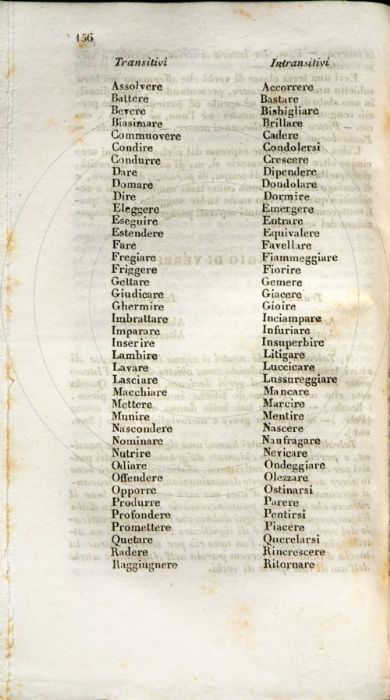 156
Transitivi Intransitivi
Assolvere Accorrere
Battere Bastare
Bevere Bisbigliare
Biasimare Brillare
Commuovere Cadere
Condire Condolersi
Condurre Crescere
Dare Dipendere
Domare Dondolare
Dire Dormire
Eleggere Emergere
Eseguire Entrare
Estendere Equivalere
Fare Favellare
Fregiare Fiammeggiare
Friggere Fiorire
Gettare Gemere
Giudicare Giacere
Ghermire Gioire
Imbrattare Inciampare
Imparare Infuriare
Inserire Insuperbire
Lambire Litigare
Lavare Luccicare
Lasciare Lussureggiare
Macchiare Mancare
Mettere Marcire
Munire Mentire
Nascondere Nascere
Nominare Naufragare
Nutrire Nevicare
Odiare Ondeggiare
Offendere Olezzare
Opporre Ostinarsi
Produrre Parere
Profondere Pentirsi
Promettere Piacere
Quetare Querelarsi
Radere Rincrescere
Raggiugnere Ritornare